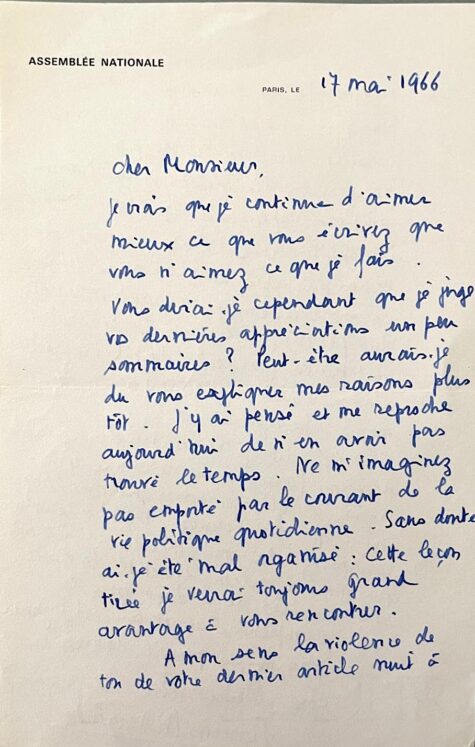 ASSEMBLÉE NATIONALE
PARIS, LE 17 mai 1966
cher Monsieur,
je crois que je continue d'aimer
mieux ce que vous écrivez que
vous n'aimez ce que je fais.
Vous dirai-je cependant que je juge
vos dernières appréciations un peu
sommaires ? Peut-être aurais-je
du vous expliquer mes raisons plus
tôt. J'y ai pensé et me reproche
aujourd'hui de n'en avoir pas
trouvé le temps. Ne m'imaginez
pas emporté par le courant de la
vie politique quotidienne. Sans doute
ai-je été mal organisé : Cette leçon
tirée je verrai toujours grand
avantage à vous rencontrer.
A mon sens la violence de
ton de votre dernier article nuit à